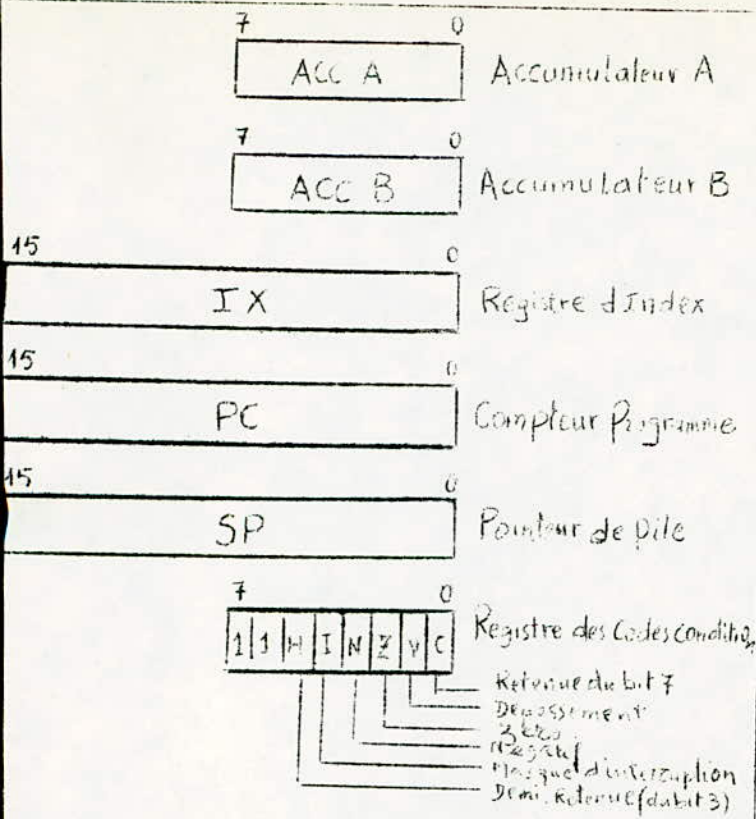 7 0
ACC A Accumulateur A
7 0
ACC B Accumulateur B
15 0
IX Registre d'Index
15 0
PC Compteur Programme
15 0
SP Pointeur de Pile
7 0
1 1 H I N Z V C Registre des Codes condition
Retenue du bit 7
Depassement
Zéro
Négatif
Masque d'interruption
Demi. Retenue (du bit 3)